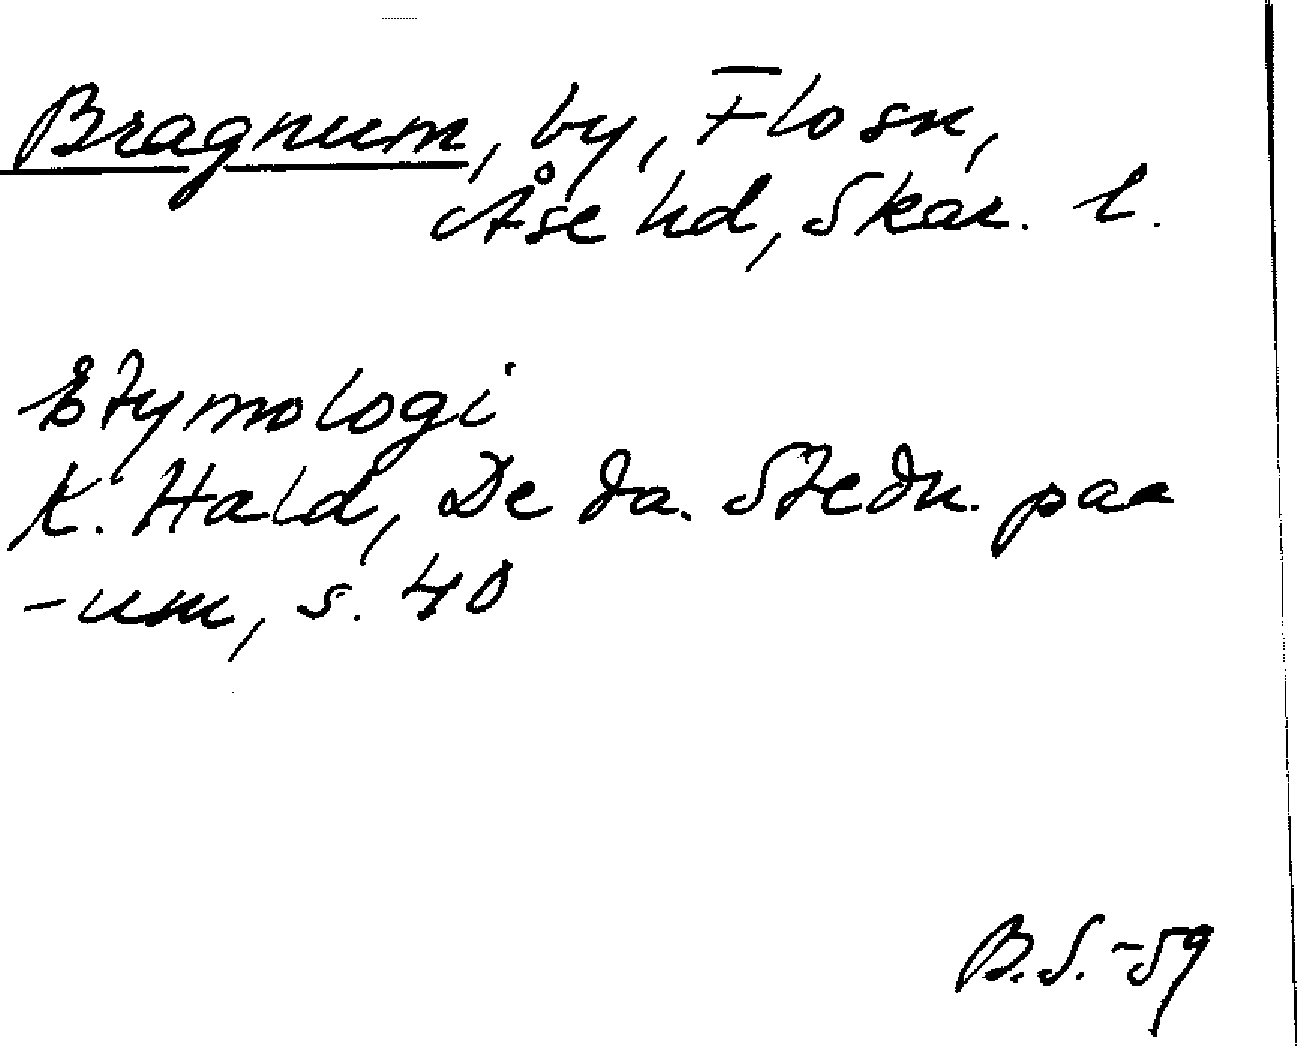 Bragnum, by, Flo sn,
Åse hd, Skar. l.
Etymologi
K. Hald, De da. Stedn. paa
-um, s. 40
B.S.-59